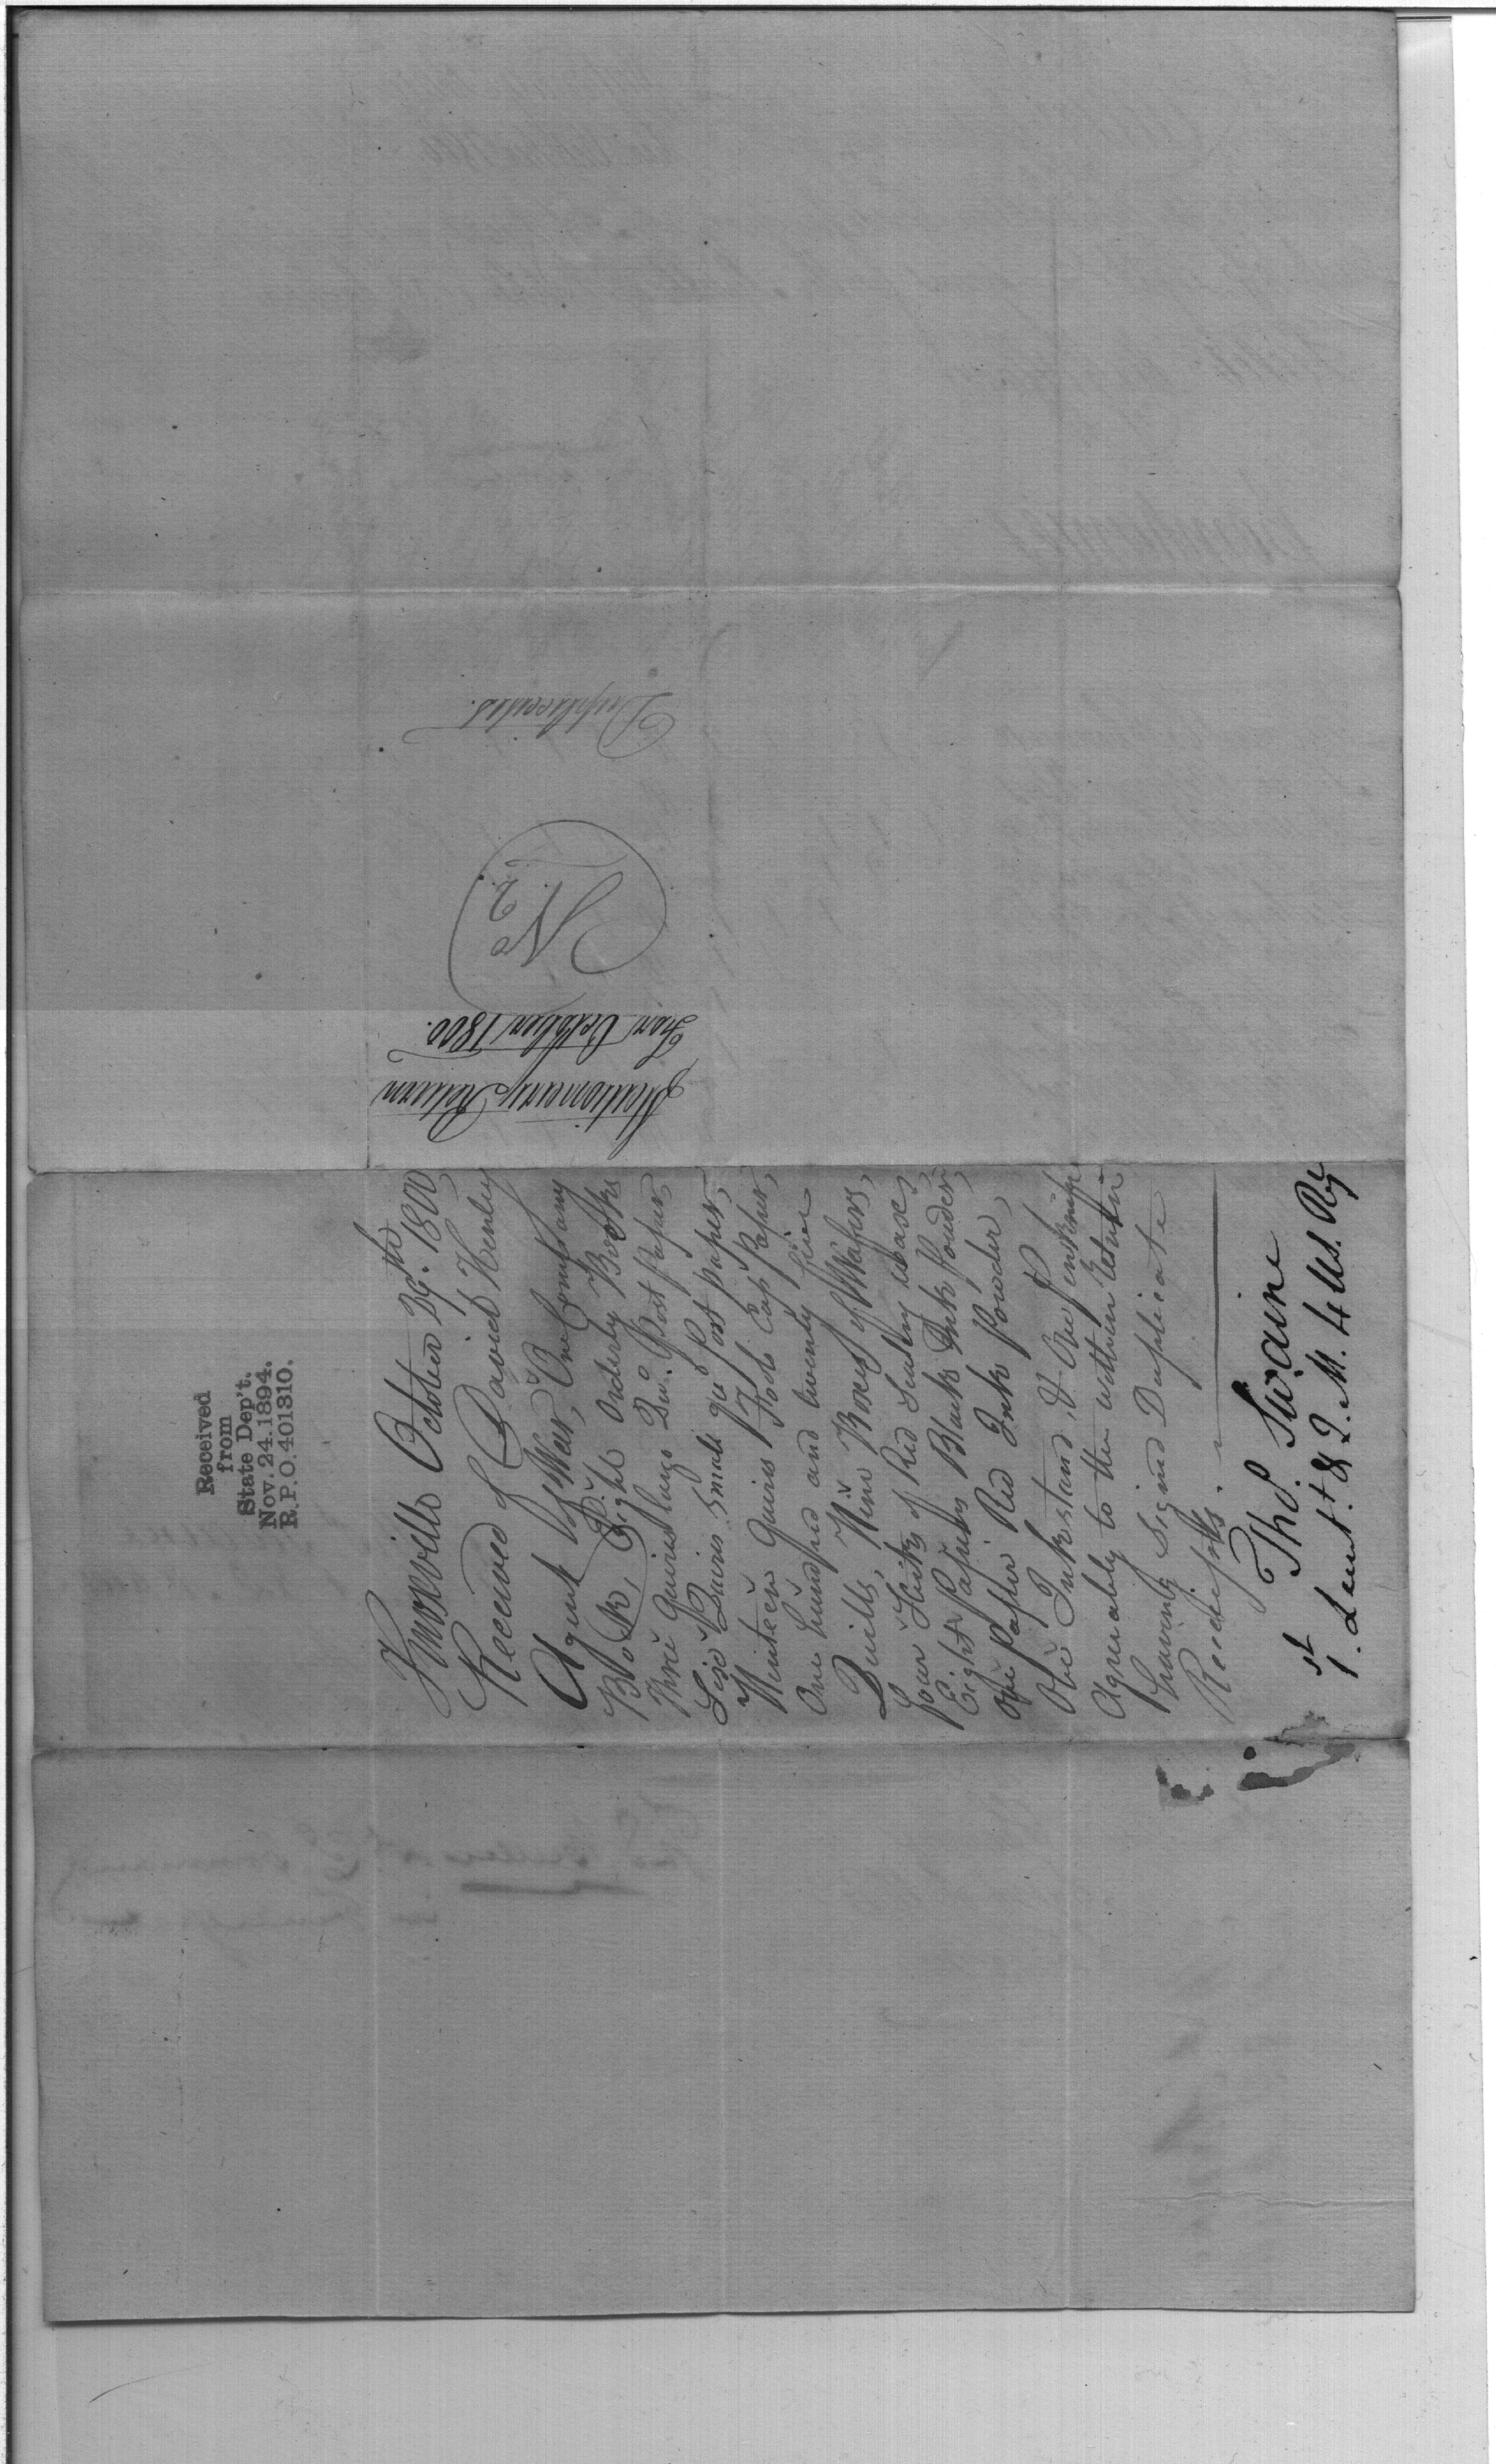 Received
from
State Dep't.
Nov. 24. 1894.
R.P.O. 401310.
Knoxville October 29th. 1800
Received of David Henley
Agent of War, One Company
Book, Eight Orderly Books
Three Quires large Post paper,
Six Quires Small Post paper,
Nineteen Quires Fools Cap Paper,
One hundred and twenty five
Quills, Nine Boxes of Wafers,
four Sticks of Red Sealing Wax,
Eight Papers Black Ink Powder,
One Paper Red Ink Powder,
One Inkstand, & One penknife
Agreeably to the within Return
having Signed Duplicate
Receipts.
Tho. Swaine
1st. Lieut. & Q. M. 4 US. Reg
Stationery Return
for October 1800.
No 2.
Duplicates.